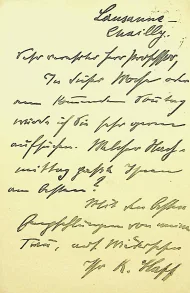 Lausanne-
Chailly.
Sehr verehrter Herr Professor,
In dieser Woche oder
am kommenden Sonntag
würde ich Sie sehr gerne
aufsuchen. Welcher Nach-
mittag paßt Ihnen
am besten?
Mit den besten
Empfehlungen von meiner
Frau, auf Wiedersehen
Ihr K.